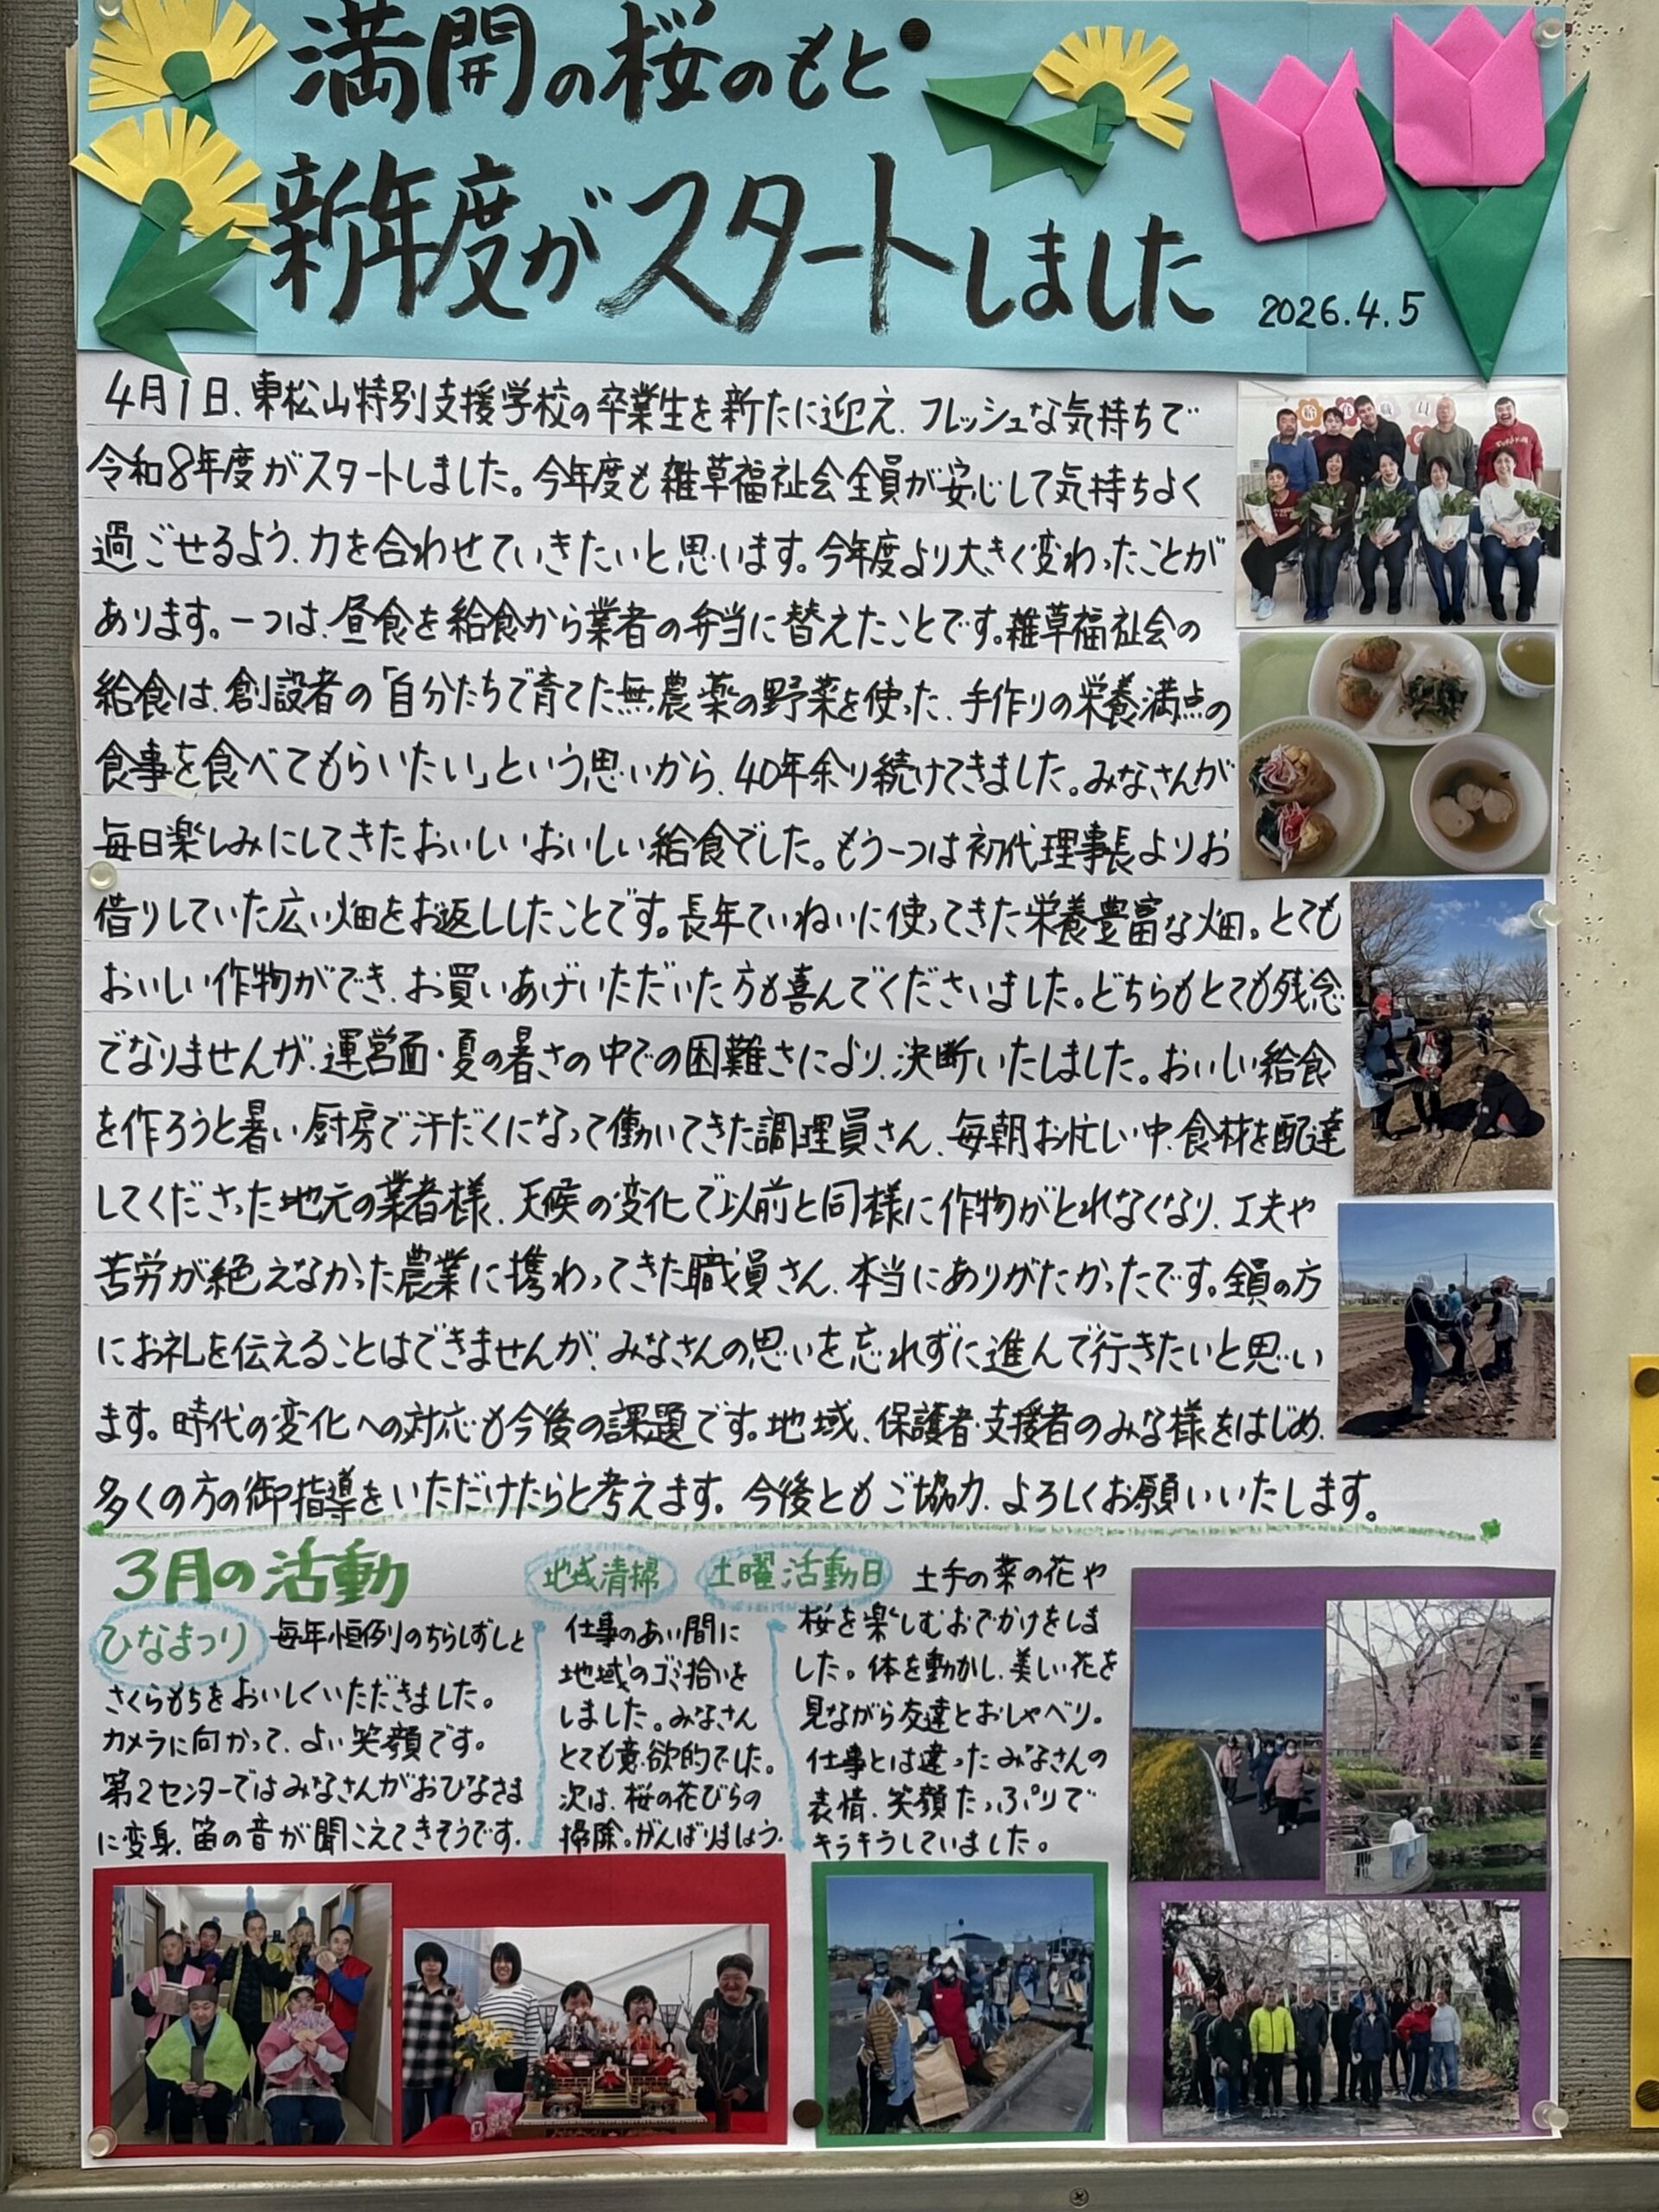 満開の桜のもと
新年度がスタートしました
2026.4.5
4月1日、東松山特別支援学校の卒業生を新たに迎え、フレッシュな気持ちで
令和8年度がスタートしました。今年度も雑草福祉会全員が安心して気持ちよく
過ごせるよう、力を合わせていきたいと思います。今年度より大きく変わったことが
あります。一つは、昼食を給食から業者の弁当に替えたことです。雑草福祉会の
給食は、創設者の「自分たちで育てた無農薬の野菜を使った、手作りの栄養満点の
食事を食べてもらいたい」という思いから、40年余り続けてきました。みなさんが
毎日楽しみにしてきたおいしいおいしい給食でした。もう一つは初代理事長よりお
借りしていた広い畑をお返ししたことです。長年ていねいに使ってきた栄養豊富な畑。とても
おいしい作物ができ、お買いあげいただいた方も喜んでくださいました。どちらもとても残念
でなりませんが、運営面・夏の暑さの中での困難さにより、決断いたしました。おいしい給食
を作ろうと暑い厨房で汗だくになって働いてきた調理員さん、毎朝お忙しい中、食材を配達
してくださった地元の業者様、天候の変化で以前と同様に作物がとれなくなり、工夫や
苦労が絶えなかった農業に携わってきた職員さん、本当にありがたかったです。全員の方
にお礼を伝えることはできませんが、みなさんの思いを忘れずに進んで行きたいと思い
ます。時代の変化への対応も今後の課題です。地域、保護者・支援者のみな様をはじめ、
多くの方の御指導をいただけたらと考えます。今後ともご協力、よろしくお願いいたします。
3月の活動
ひなまつり 毎年恒例のちらしずしと
さくらもちをおいしくいただきました。
カメラに向かって、よい笑顔です。
第2センターではみなさんがおひなさま
に変身。笛の音が聞こえてきそうです。
地域清掃
仕事のあい間に
地域のゴミ拾いを
しました。みなさん
とても意欲的でした。
次は、桜の花びらの
掃除。がんばりましょう。
土曜活動日 土手の菜の花や
桜を楽しむおでかけをしま
した。体を動かし、美しい花を
見ながら友達とおしゃべり。
仕事とは違ったみなさんの
表情、笑顔たっぷりで
キラキラしていました。